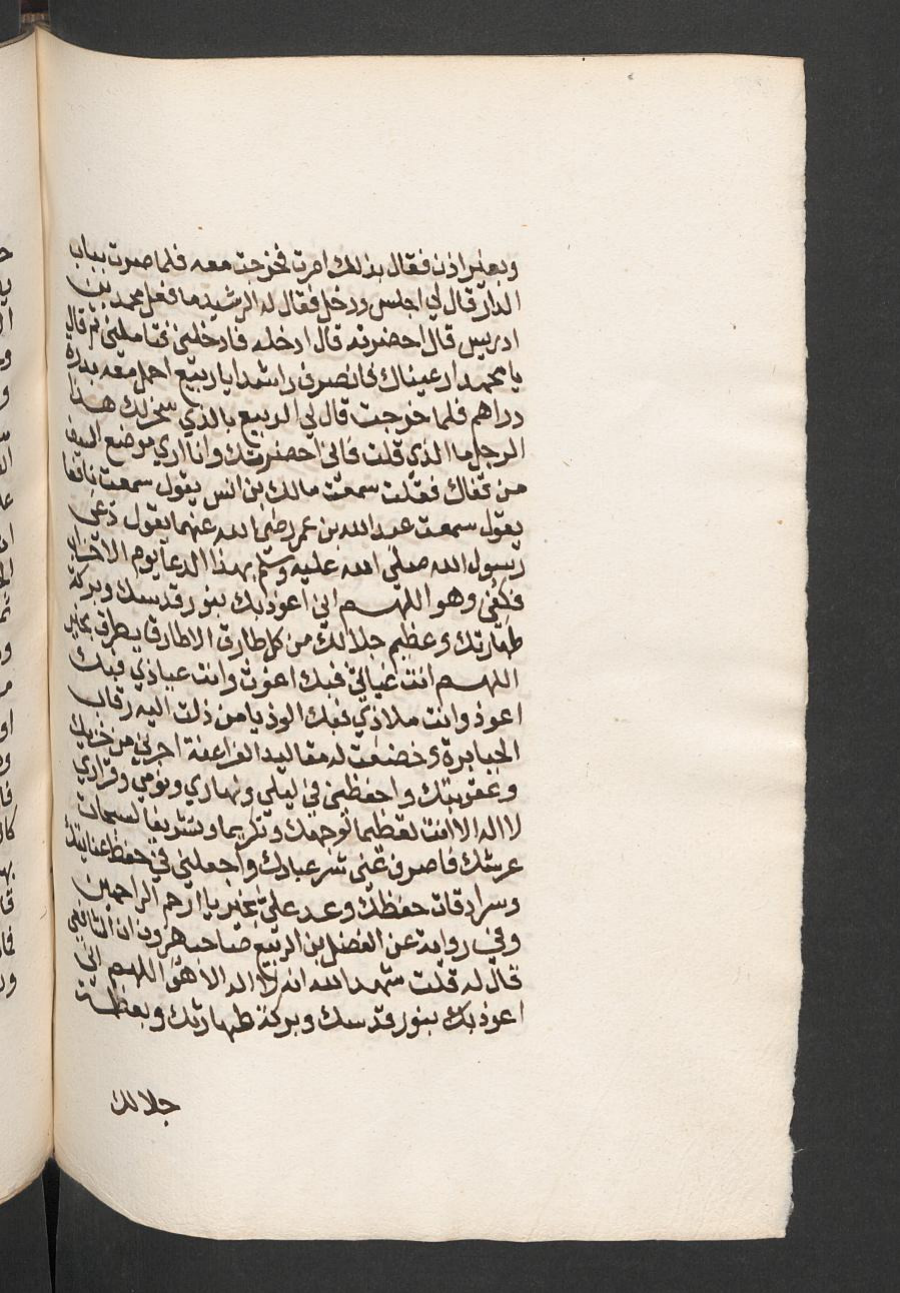 وبغير اذن فقال بذلك امرت فخرجت معه فلما صرت بباب
الدار قال لي اجلس ودخل فقال له الرشيد ما فعل محمد بن
ادريس قال احضرته قال ادخله فادخلني فتاملني ثم قال
يا محمد ارعبناك فانصرف راشدا يا ربيع احمل معه بدرة
دراهم فلما خرجت قال لي الربيع بالذي سخر لك هذا
الرجل ما الذي قلت فاني احضرتك وانا اري موضع السيف
من قفاك فقلت سمعت مالك بن انس يقول سمعت نافعا
يقول سمعت عبد الله بن عمر رضي الله عنهما يقول دعى
رسول الله صلي الله عليه وسلم بهذا الدعا يوم الاحزاب
فكفي وهو اللهم اني اعوذ بك بنور قدسك وبركة
طهارتك وعظيم جلالك من كل طارق الا طارقا يطرق بخير
اللهم انت غياثي فبك اغوث وانت عياذي فبك
اعوذ وانت ملاذي فبك الوذ يا من ذلت اليه رقاب
الجبابرة وخضعت له مقاليد الفراعنة اجرني من خزيك
وعقوبتك واحفظني في ليلي ونهاري ونومي وقراري
لا اله الا انت تعظيما لوجهك وتكريما وتشريفا لسبحات
عرشك فاصرف عني شر عبادك واجعلني في حفظ عنايتك
وسرادقات حفظك وعد علي بخير يا ارحم الراحمين
وفي رواية عن الفضل بن الربيع صاحب هرون ان الشافعي
قال له قلت شهد الله انه لا اله الا هو اللهم اني
اعوذ بك بنور قدسك وبركة طهارتك وبعظمة
جلالك